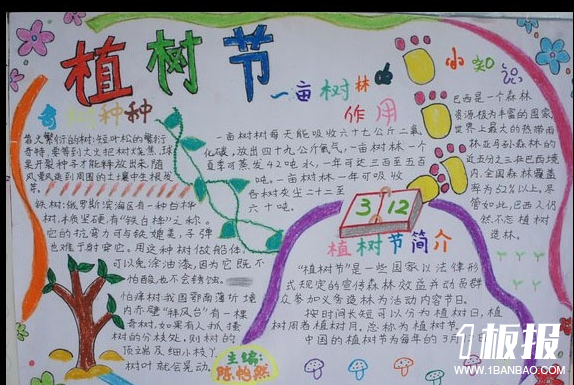 植树节
奇树种种
着火繁衍的树:短叶松的繁衍
奇特,要等到大火把树烧焦,球
果开裂种子才能释放出来,随
风漫飞到周围的土壤中生根发
芽。
铁树:俄罗斯滨海区有一种白桦
树,木质坚硬,有"铁白桦"之称。
它的抗弯力可与铁媲美,子弹
也难于射穿它。用这种树做船体
可以免涂油漆,因为它既不
怕酸,也不会锈蚀。
怕痒树:我国鄂南蒲圻境
内赤壁"拜风台"有一棵
奇树,如果有人抓搔
树的分枝处,则树的
顶端及细小枝丫
树叶就会晃动。
主编:
陈怡然
一亩树林的
作用
一亩树林每天能吸收六十七公斤二氧
化碳,放出四十九公斤氧气,一亩树林一个
夏季可蒸发42吨水,一年可达三百至五百
吨。一亩树林一年可吸收
各种灰尘二十二至
六十吨。
小知识
巴西是一个森林
资源极为丰富的国家,
世界上最大的热带雨
林亚马孙森林的
近五分之三在巴西境
内,全国森林覆盖
率为62%以上。尽
管如此,巴西人仍
然不忘植树
造林。
3 12
植树节简介
"植树节"是一些国家以法律形
式规定的宣传森林效益并动员群
众参加义务造林为活动内容节日。
按时间长短可以分为植树日,植
树周者植树月,总称为植树节。
中国的植树节为每年的3月12日
1板报
WWW.1BANBAO.COM